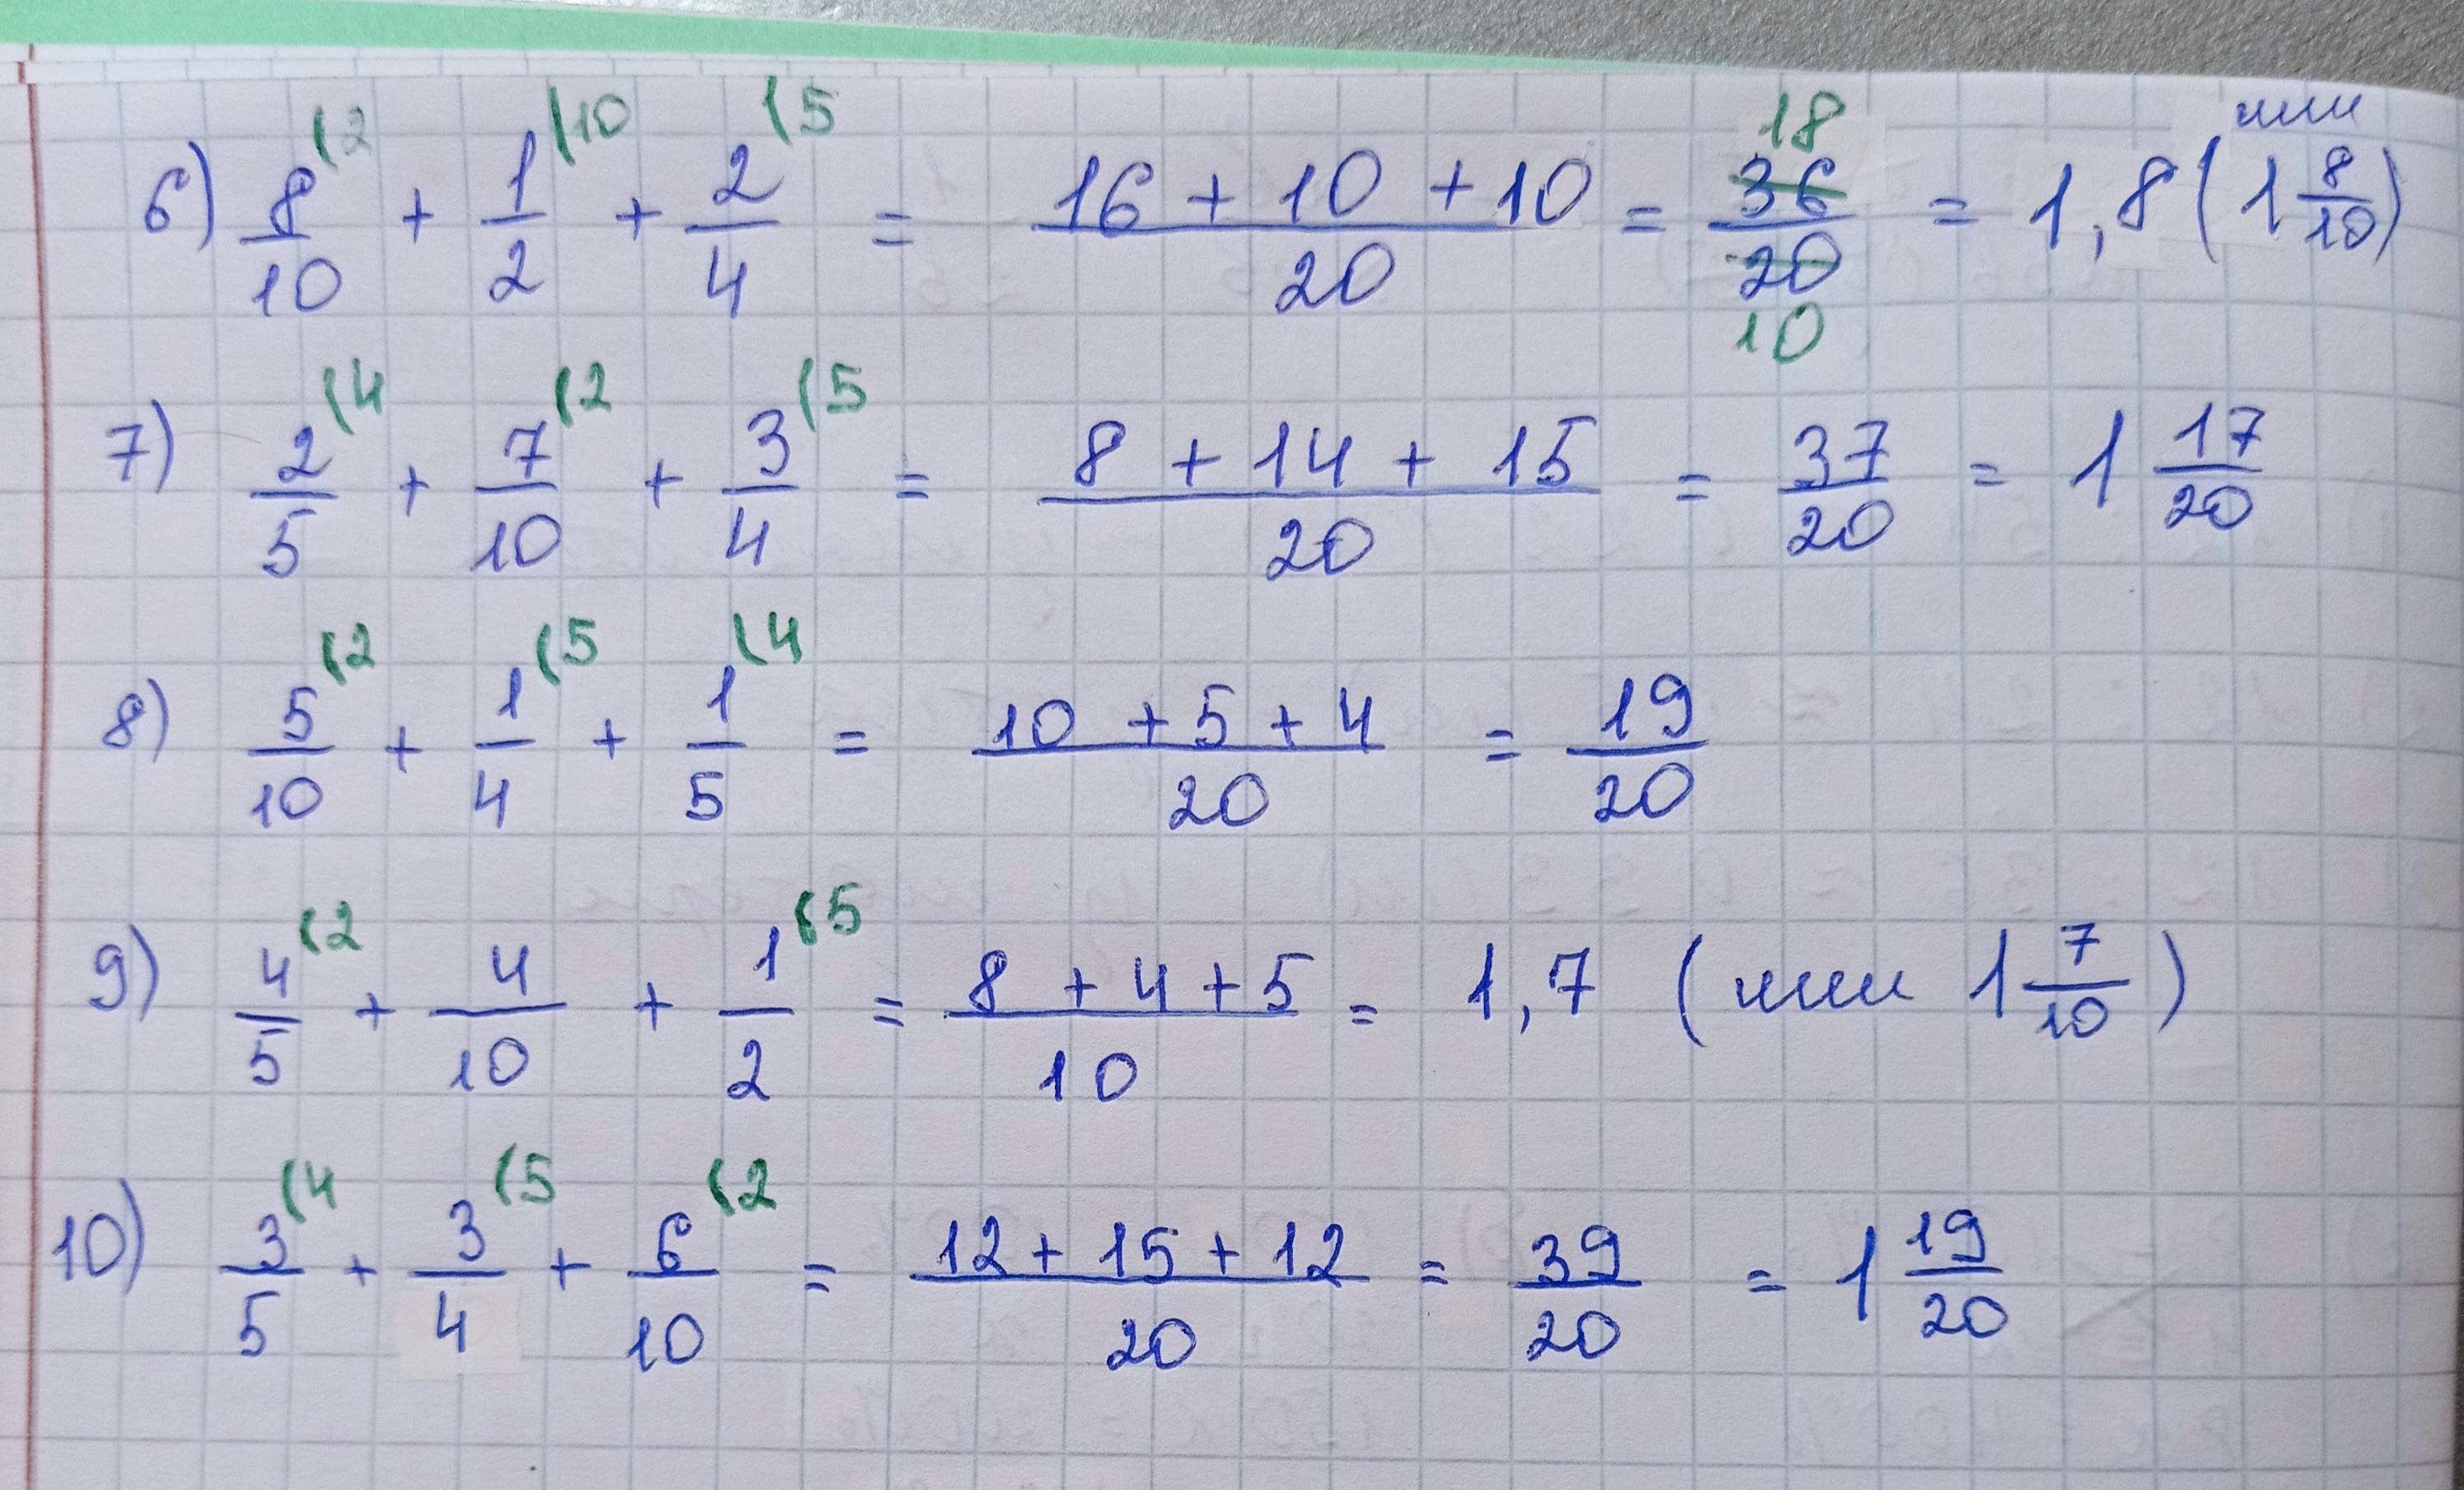 6) 8/10 (2 + 1/2 (10 + 2/4 (5 = (16 + 10 + 10)/20 = 36/20 18/10 = 1,8 (или 1 8/10)
7) 2/5 (4 + 7/10 (2 + 3/4 (5 = (8 + 14 + 15)/20 = 37/20 = 1 17/20
8) 5/10 (2 + 1/4 (5 + 1/5 (4 = (10 + 5 + 4)/20 = 19/20
9) 4/5 (2 + 4/10 + 1/2 (5 = (8 + 4 + 5)/10 = 1,7 (или 1 7/10)
10) 3/5 (4 + 3/4 (5 + 6/10 (2 = (12 + 15 + 12)/20 = 39/20 = 1 19/20